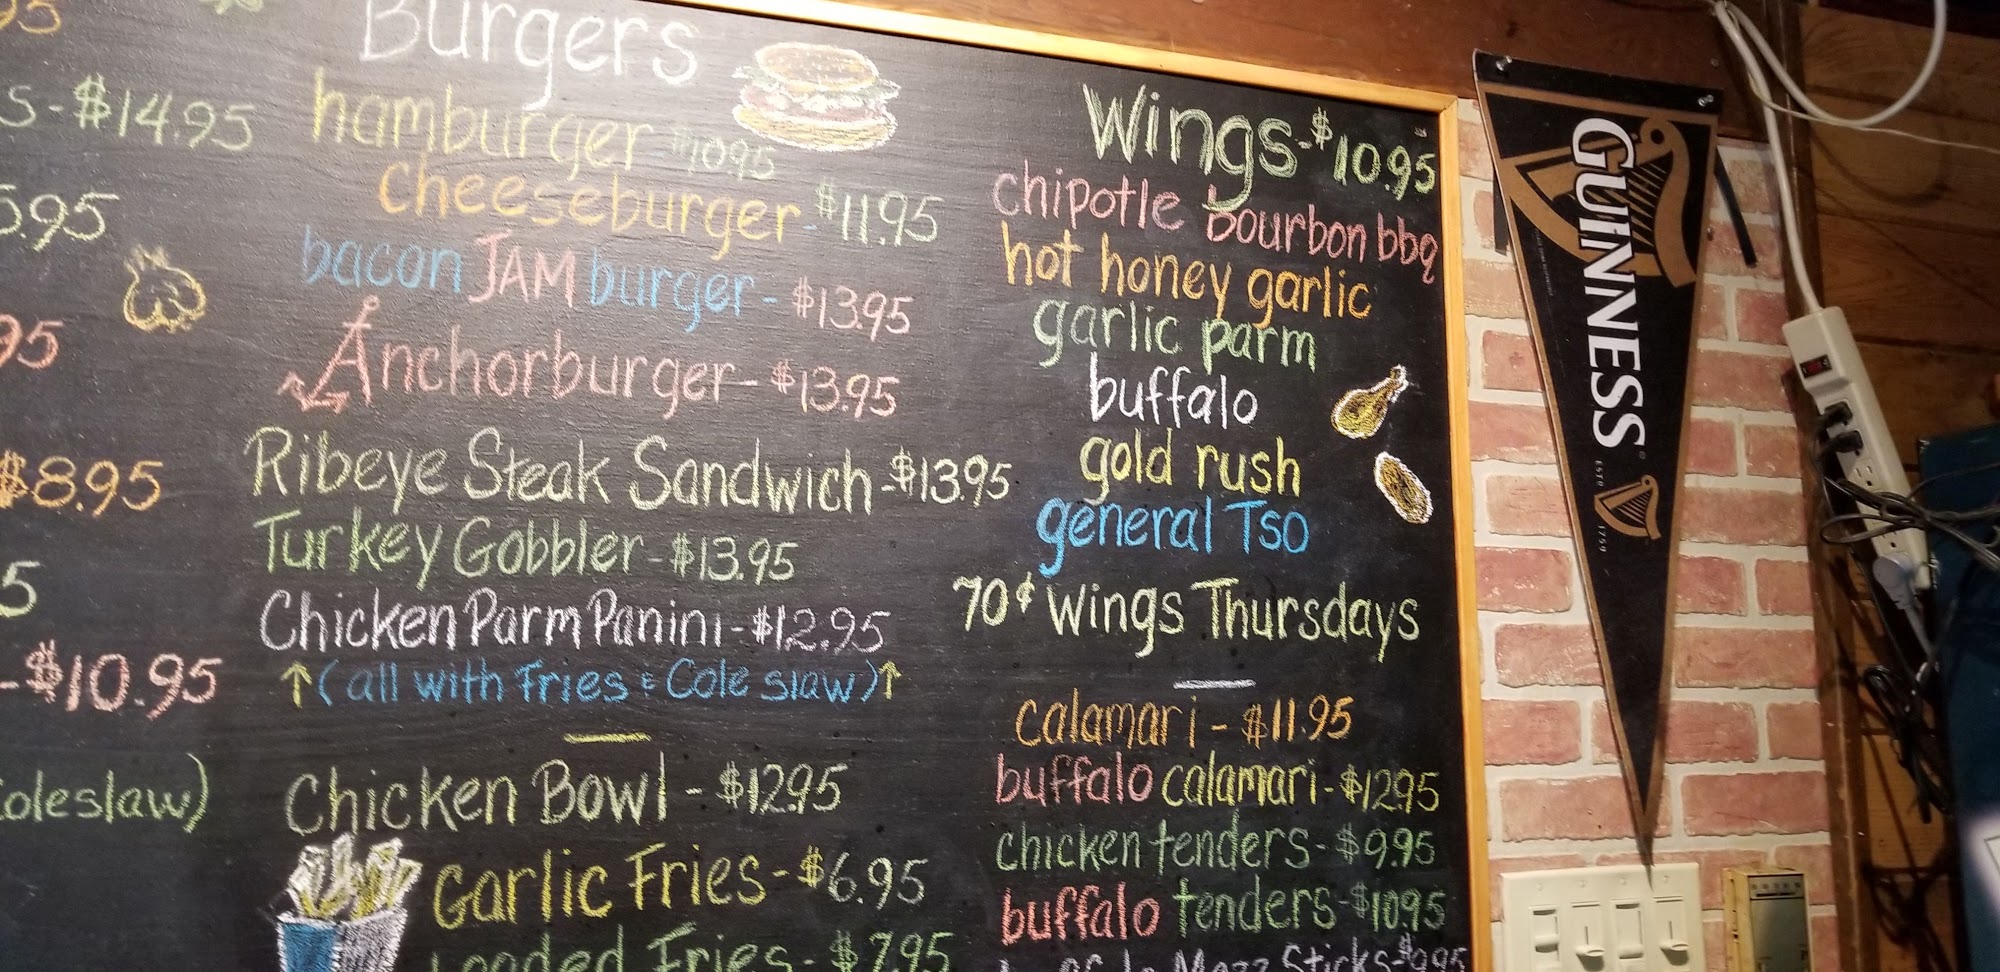 S-$14.95
$8.95
-$10.95
Coleslaw)
Burgers
hamburger $10.95
cheeseburger-$11.95
bacon JAM burger-$13.95
Anchorburger-$13.95
Ribeye Steak Sandwich-$13.95
Turkey Gobbler-$13.95
Chicken Parm Panini-$12.95
↑(all with Fries & Cole slaw)↑
Chicken Bowl-$12.95
Garlic Fries-$6.95
Loaded Fries-$7.95
Wings-$10.95
chipotle bourbon bbq
hot honey garlic
garlic parm
buffalo
gold rush
general Tso
70¢ Wings Thursdays
calamari-$11.95
buffalo calamari-$12.95
chicken tenders-$9.95
buffalo tenders-$10.95
Mozz Sticks-$9.95
GUINNESS
ESTD 1759